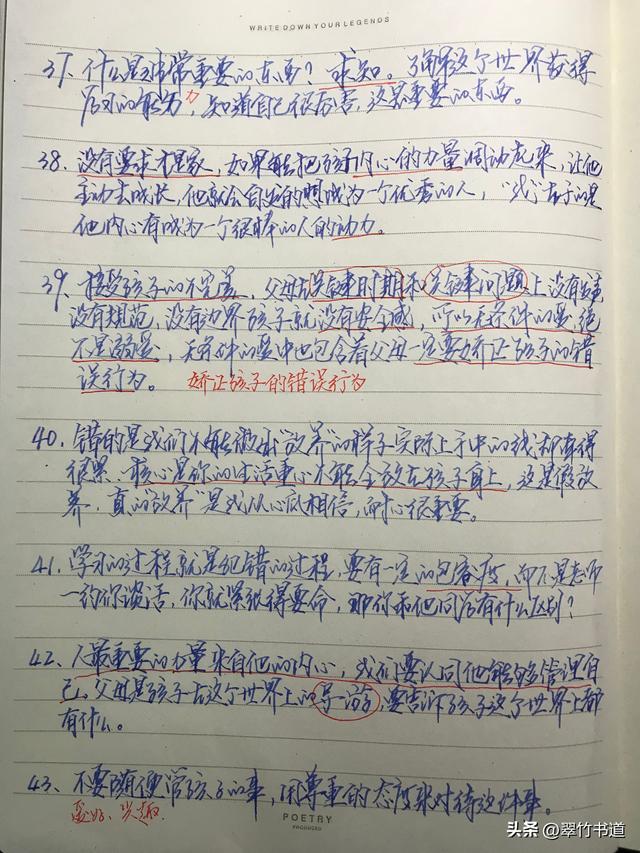 WRITE DOWN YOUR LEGENDS
37. 什么是非常重要的东西？求知。了解这个世界获得
应对的能力力，知道自己很厉害，这是重要的东西。
38. 没有要求才是家，如果能把孩子内心的力量调动起来，让他
主动去成长，他就会自发的想成为一个优秀的人，“线”在于的是
他内心有成为一个很棒的人的动力。
39. 接受孩子的不完美，父母在关键时期和关键问题上没有
没有规范，没有边界孩子就没有安全感，所以无条件的爱，绝
不是溺爱，无条件的爱中也包含着父母一定要矫正孩子的错
误行为。 矫正孩子的错误行为
40. 错的是我们不能假出“放养”的样子实际上手中的线却牵得
很累，核心是你的生活重心不能全放在孩子身上，这是假放
养，真的“放养”是我从心底相信，耐心很重要。
41. 学习的过程就是犯错的过程，要有一定的包容度，而不是老师
一约你谈话，你就紧张得要命，那你和他同学有什么区别？
42. 人最重要的力量来自他的内心，我们要认同他能够管理自
己，父母是孩子在这个世界上的导游，要告诉孩子这个世界上都
有什么。
43. 不要随便管孩子的事，用尊重的态度来对待这件事。
爱好、兴趣
POETRY
PRODUCED
头条 @翠竹书道